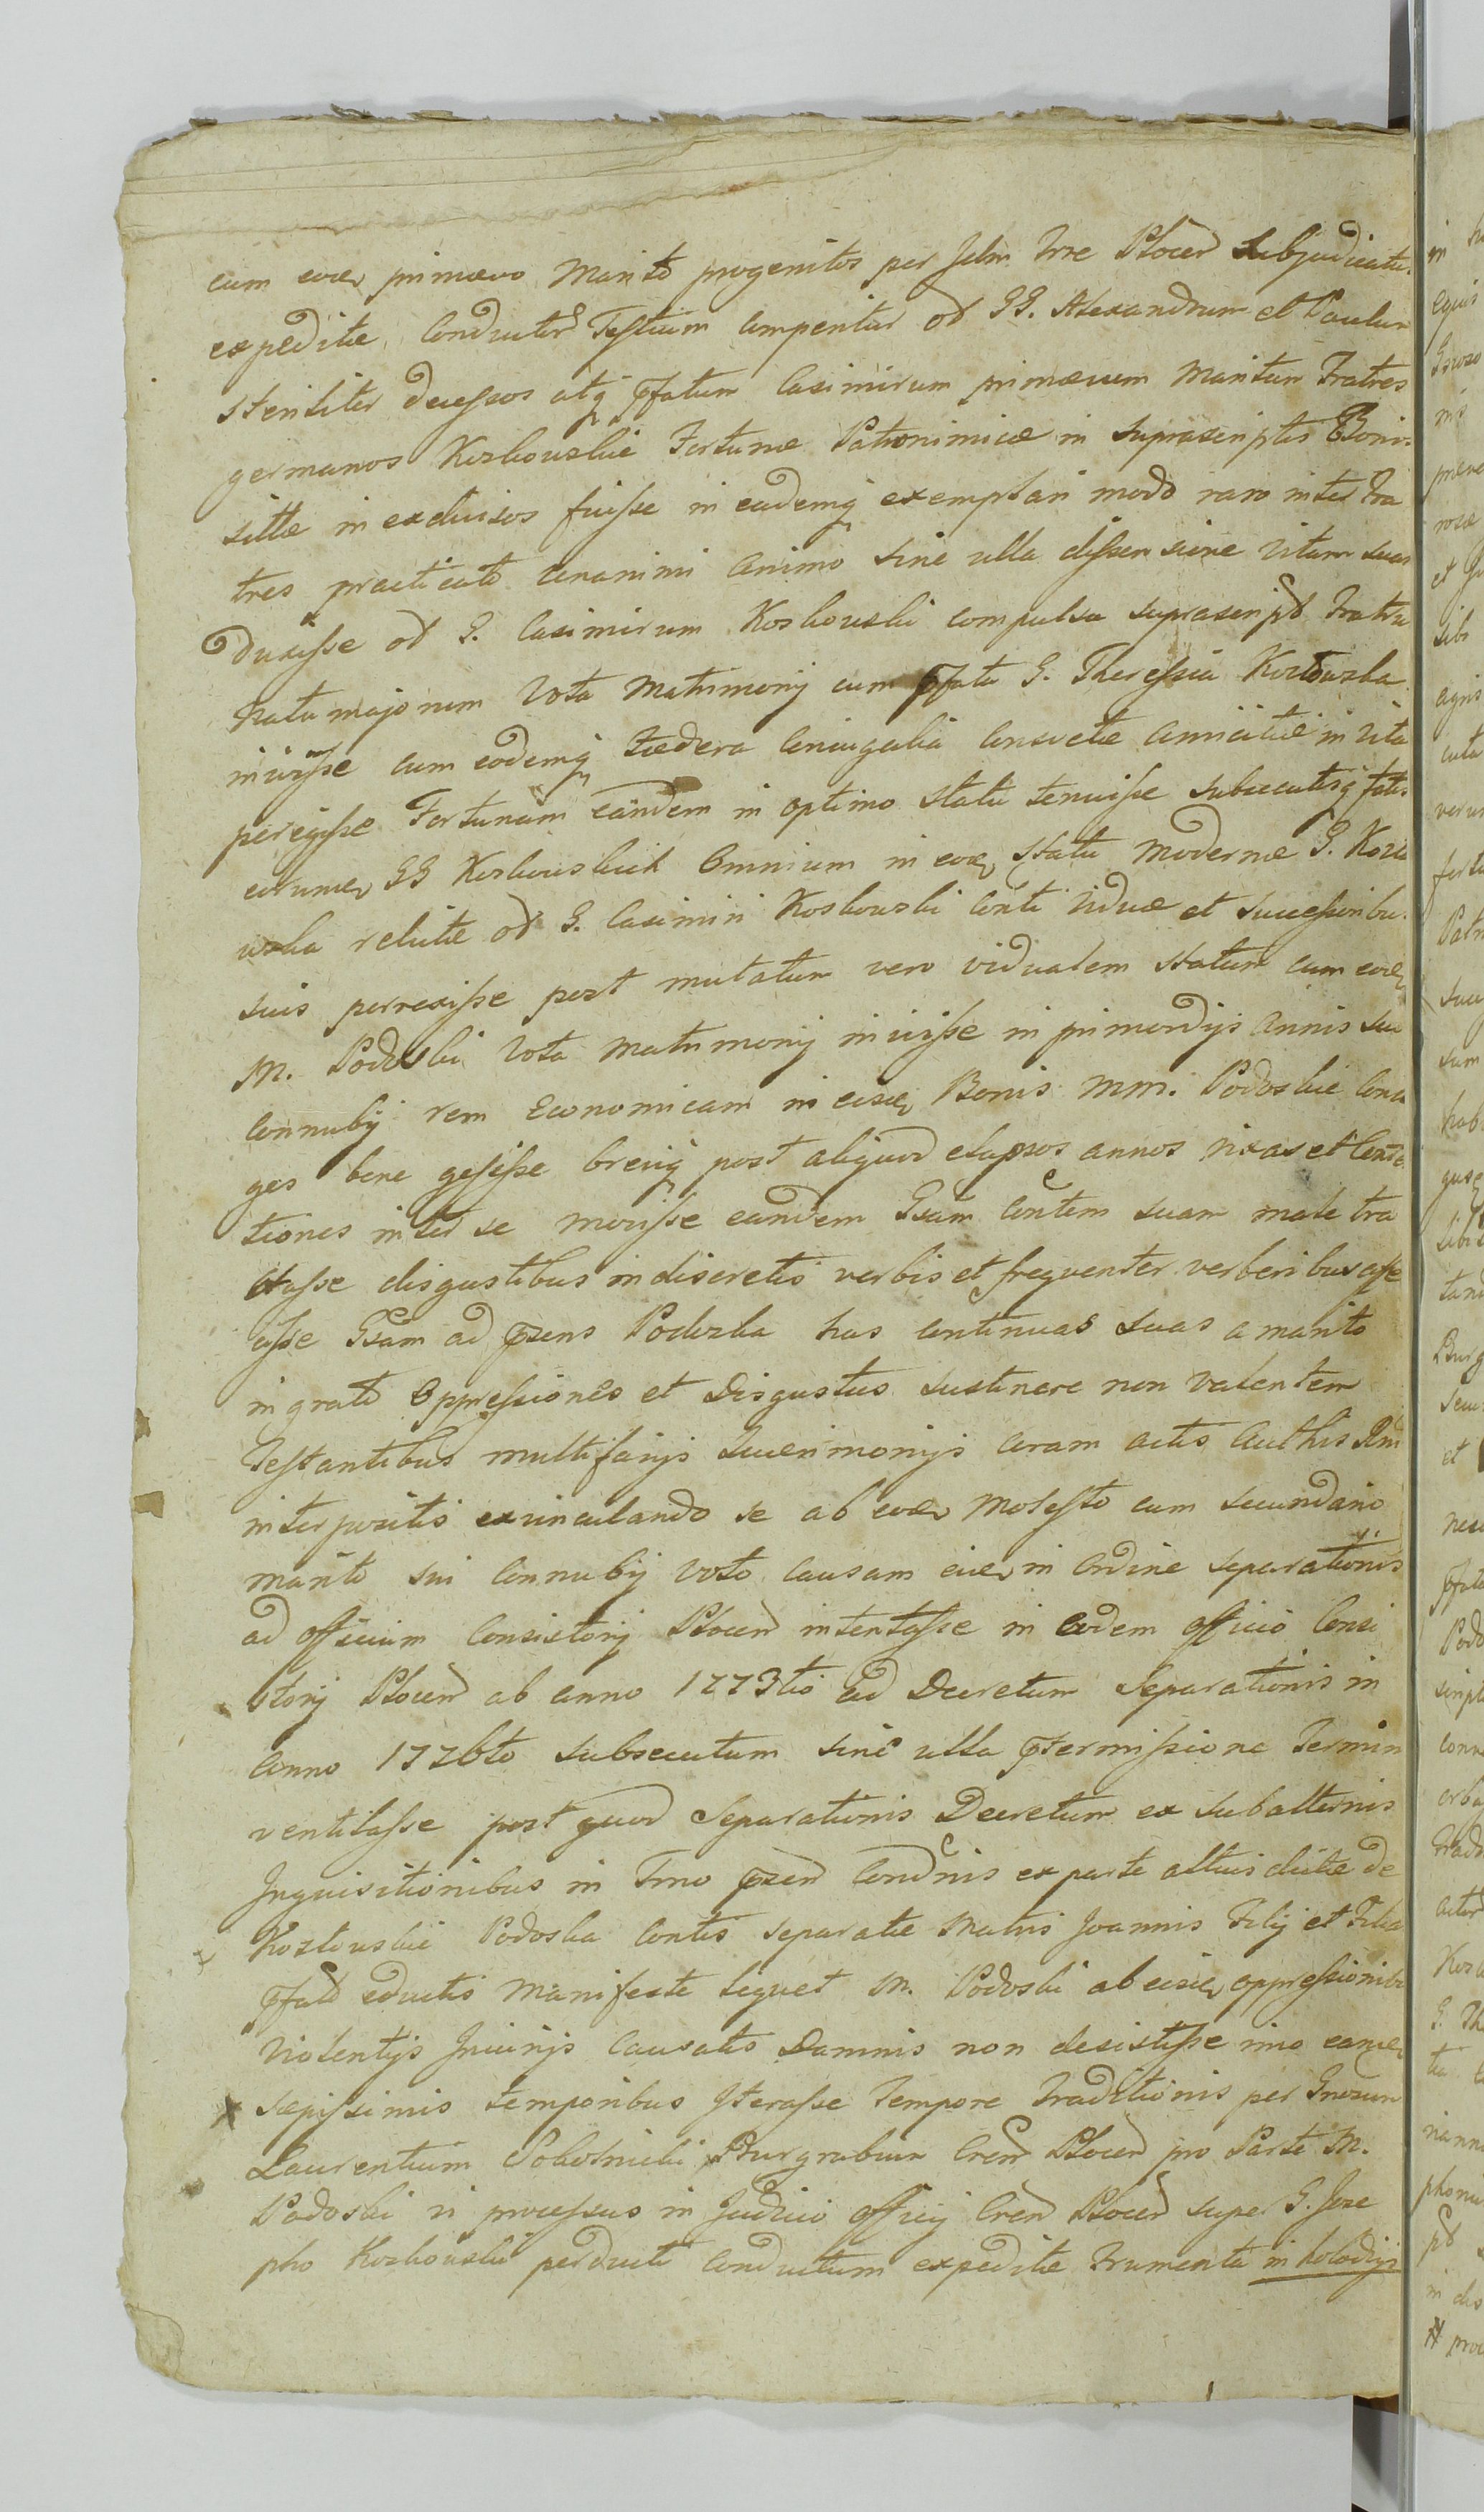 cum eod primævo Marito progenitos per Jelm Tre Plocen Subjudicatu
expeditæ Conductor Testium Comperitur od GG. Alexandrum et Paulum
steriliter decessos atq pfatum Casimirum primævum Maritum Fratres
germanos Kozłouskie Fortunæ Patronimicæ in suprascriptis Bonis
sittæ in exdivisos fuisse in eademq exemplari modo raro inter Fra
tres practicato unanimi animo sine ulla dissensione Vitam suam
duxisse od G. Casimirum Koskouski compulsu suprascript Fratru
natu majorum Vota Matrimonij cum pfata G. Theressia Kozłouska
inivisse cum eodemq Fædera Coniugalia Consvetæ Amicitiæ in Vita
peregisse Fortunam eandem in optimo Statu tenuisse subsecutisq fatis
eorum GG Kozkouskich Omnium in eod Statu Modernæ G. Kozło
uska relictæ od G. Casimiri Koskouski Conti Viduæ et Successoribus
suis perrexisse post mutatum vero vidualem statum cum eod
M. Podoski Vota Matrimonij inivisse in primordijs Annis sui
Connubij rem Economicam in eisd Bonis MM. Podoskie Conju
ges bene gessisse breviq post aliquod elapsos annos rixas et Conte
tiones inter se movisse eandem Gsam Contem suam male tra
ctasse disgustibus indiscretis verbis et frequenter verberibus affe
cisse Gsam ad psens Podoska has Continuas suas a marito
ingrato Oppressiones et Disgustus sustinere non Valentem
Testantibus multifarijs Querimonijs Coram actis Authis Rni
interpositis exvinculando se ab eod Molesto cum secundario
marito sui Connubij voto Causam eid in Ordine separationis
ad officium Consistorij Plocen intentasse in eodem officio Consi
storij Plocen ab anno 1773tio ad Decretum Separationis in
Anno 1776to subsecutum sine ulla ptermissione Termin
ventilasse post quod Separationis Decretum ex subalternis
Inquisitionibus in Tmo psen Condnis ex parte altius dictæ de
Kozłouskie Podoska Contis separatæ Matris Joannis Filij et Filia
pfat eductis Manifeste liquet M. Podoski ab eisd oppressionibus
Violentijs Injurijs Causatis Damnis non desistisse imo eand
sæpissimis temporibus Iterasse Tempore Traditionis per Gnosum
Laurentium Sobotnicki Burgrabium Cren Plocen pro Parte M.
Podoski vi processus in Judicio officij Cren Plocen super G. Jose
pho Kozkouski perducti Conductum expeditæ Frumenta in kolodzij